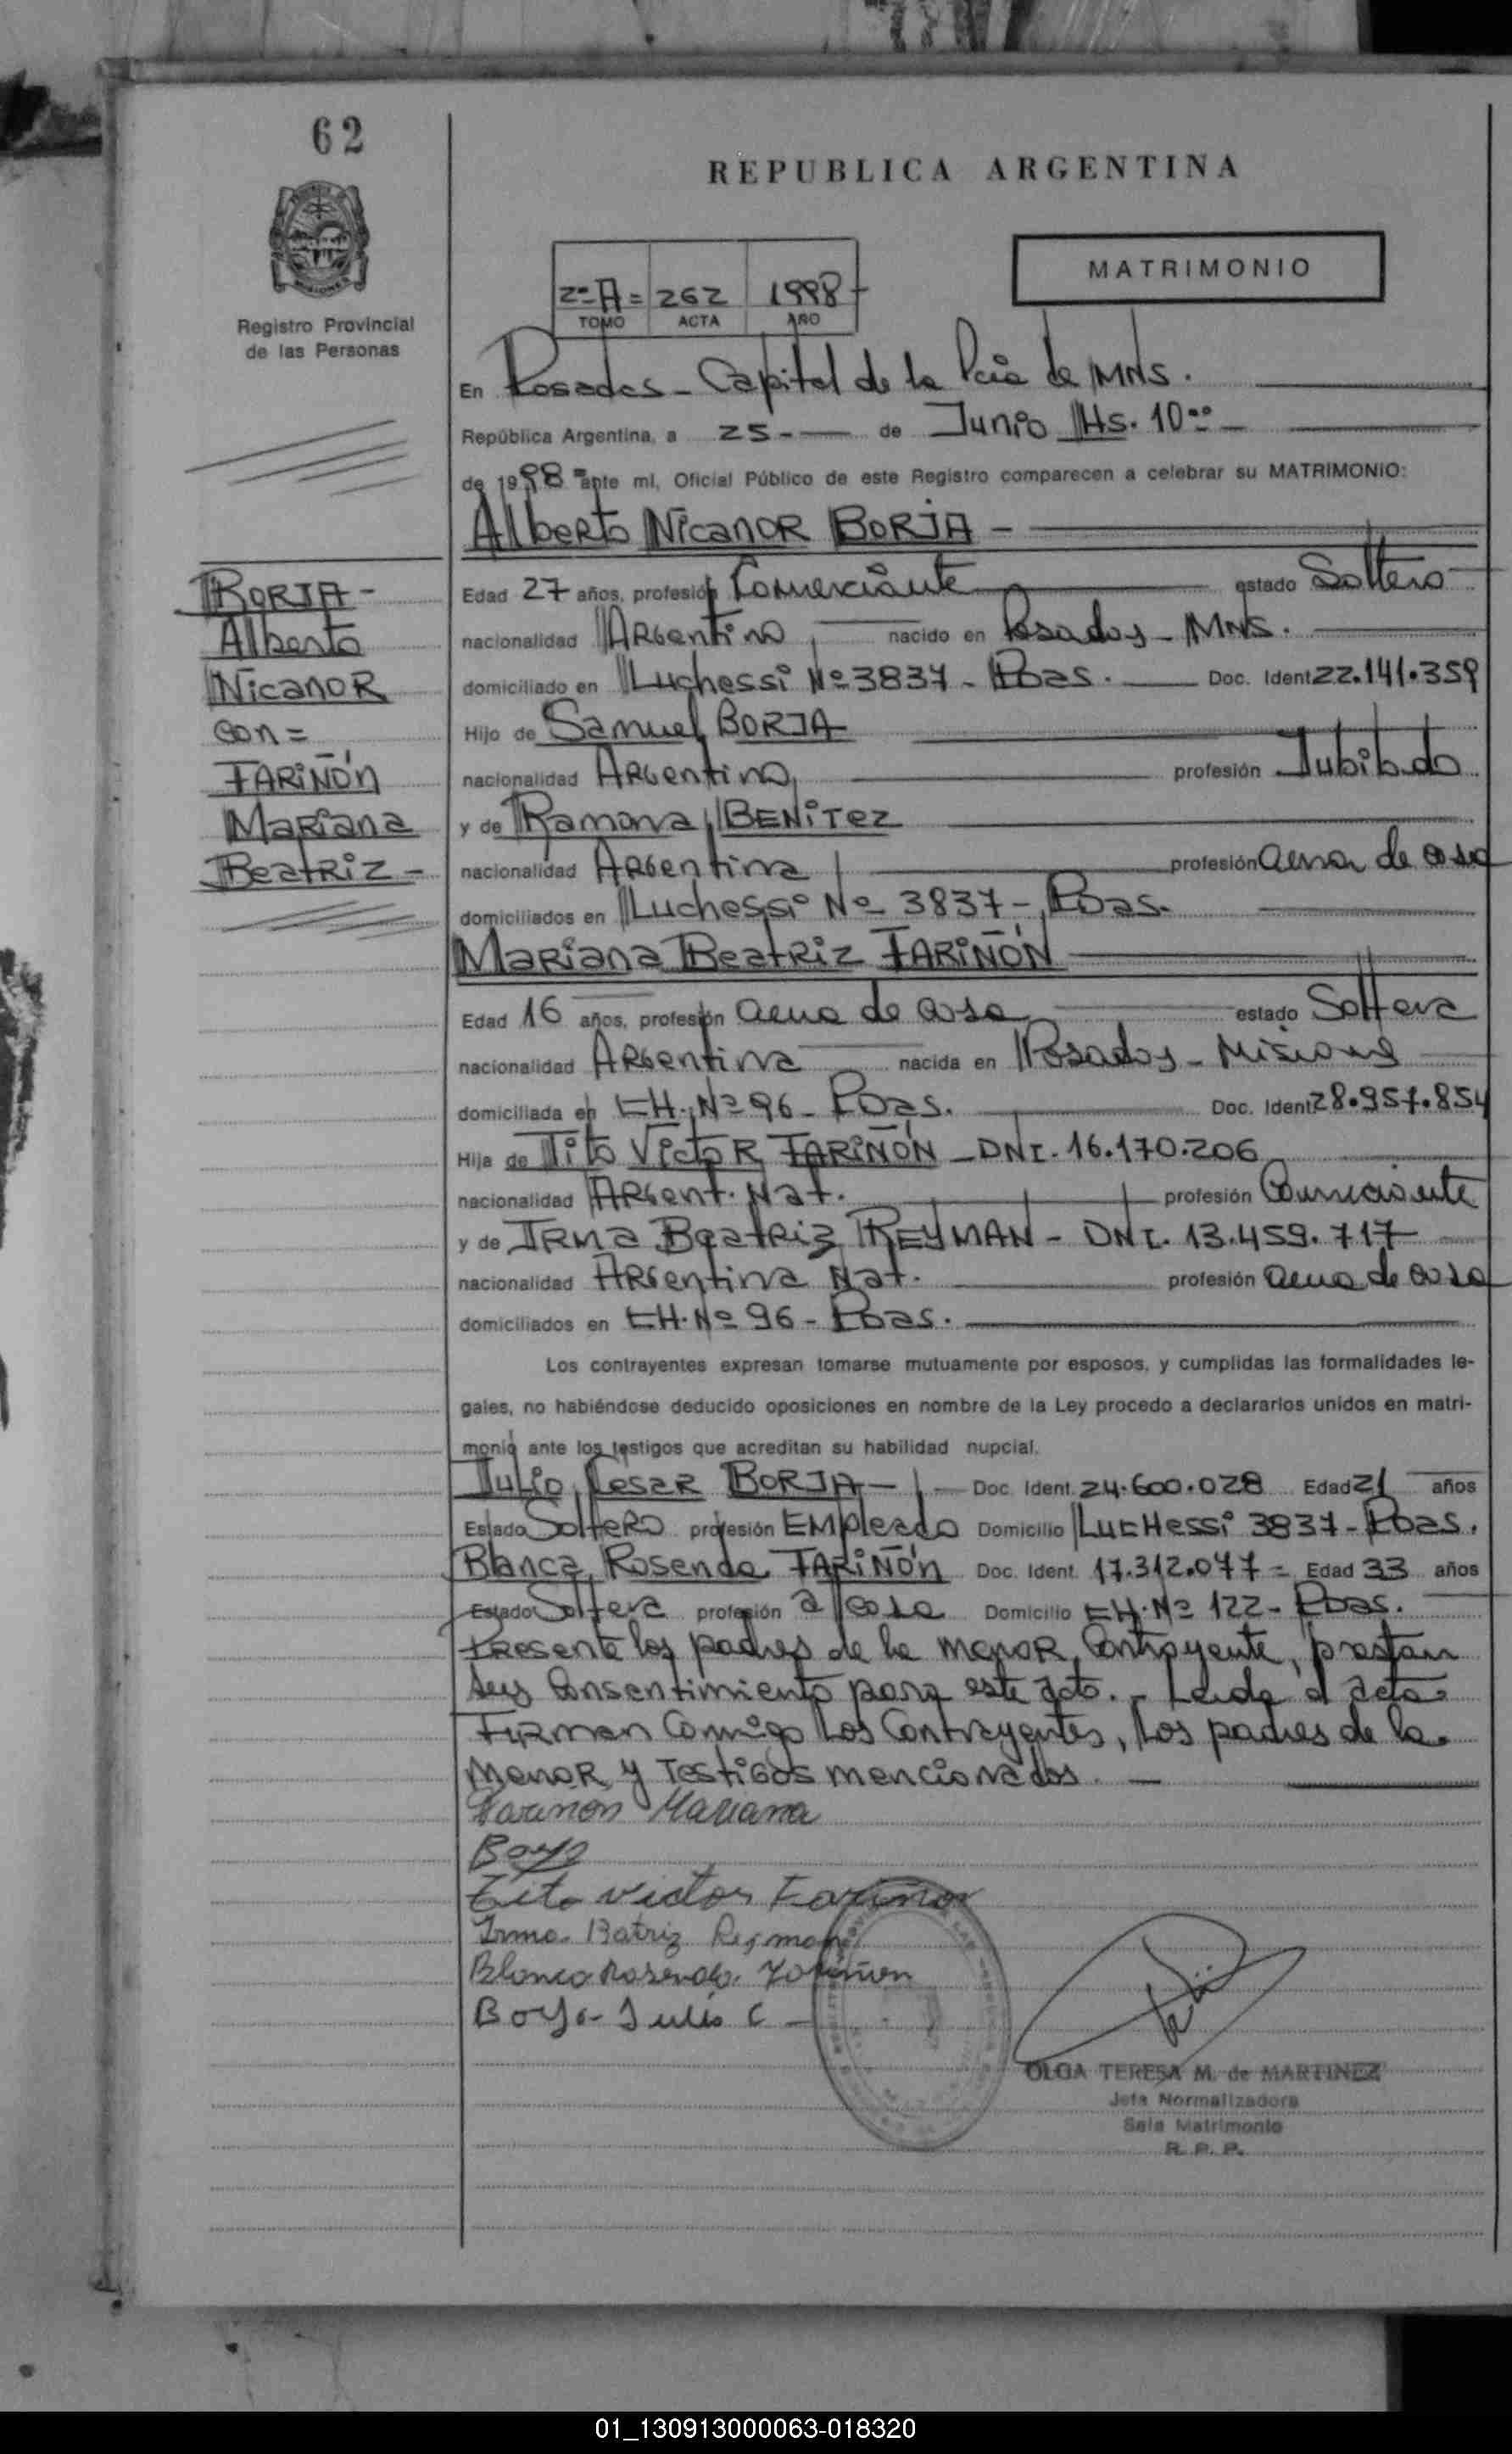 62
REPUBLICA ARGENTINA
MATRIMONIO
2º-A= 262 1998
TOMO ACTA AÑO
Registro Provincial
de las Personas
En Posadas - Capital de la Pcia de MNS.
República Argentina, a 25 - de Junio Hs. 10:00 -
de 1998 ante mí, Oficial Público de este Registro comparecen a celebrar su MATRIMONIO:
Alberto Nicanor BORJA -
BORJA -
Alberto
Nicanor
con =
FARIÑÓN
Mariana
Beatriz -
Edad 27 años, profesión Comerciante estado Soltero
nacionalidad Argentina, nacido en Posadas - MNS.
domiciliado en Luchessi Nº 3837 - Pdas. Doc. Ident. 22.141.359
Hijo de Samuel BORJA
nacionalidad Argentina, profesión Jubilado
y de Ramona BENITEZ
nacionalidad Argentina profesión ama de casa
domiciliados en Luchessi Nº 3837 - Pdas.
Mariana Beatriz FARIÑÓN
Edad 16 años, profesión ama de casa estado Soltera
nacionalidad Argentina nacida en Posadas - Misiones
domiciliada en CH. Nº 96 - Pdas. Doc. Ident. 28.957.854
Hija de Tito Victor FARIÑÓN - DNI. 16.170.206
nacionalidad Argent. Nat. profesión Comerciante
y de Irma Beatriz REYMAN - DNI. 13.459.717
nacionalidad Argentina Nat. profesión ama de casa
domiciliados en CH. Nº 96 - Pdas.
Los contrayentes expresan tomarse mutuamente por esposos, y cumplidas las formalidades le-
gales, no habiéndose deducido oposiciones en nombre de la Ley procedo a declararlos unidos en matri-
monio ante los testigos que acreditan su habilidad nupcial.
Julio Cesar BORJA - Doc. Ident. 24.600.028 Edad 21 años
Estado Soltero profesión Empleado Domicilio Luchessi 3837 - Pdas.
Blanca Rosenda FARIÑÓN Doc. Ident. 17.312.077 = Edad 33 años
Estado Soltera profesión a/casa Domicilio CH. Nº 122 - Pdas.
Presente los padres de la menor Contrayente, prestan
sus Consentimiento para este acto. - Leida el acta
Firman Conmigo Los Contrayentes, Los padres de la
Menor y Testigos mencionados. -
Fariñon Mariana
Borja
Tito Victor Fariñon
Irma Batriz Reyman
Blanca Rosenda Fariñon
Borja Julio C -
OLGA TERESA M. de MARTINEZ
Jefa Normalizadora
Sala Matrimonio
R. P. P.
01_130913000063-018320